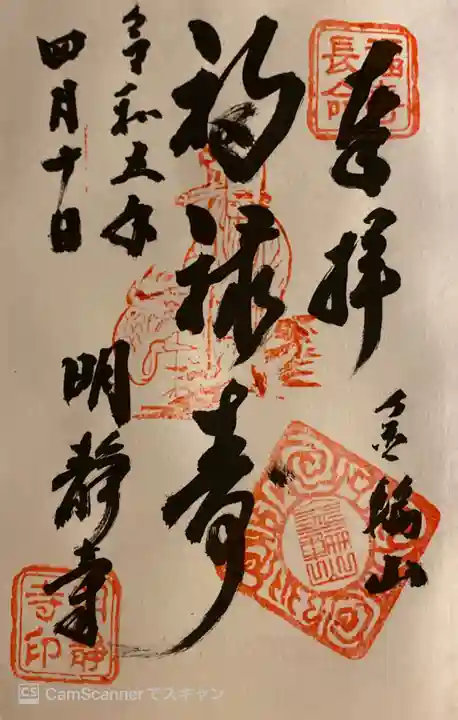 奉拝
福禄寿
令和五年
四月十日
明静寺
長命
明静寺印
CS CamScannerでスキャン